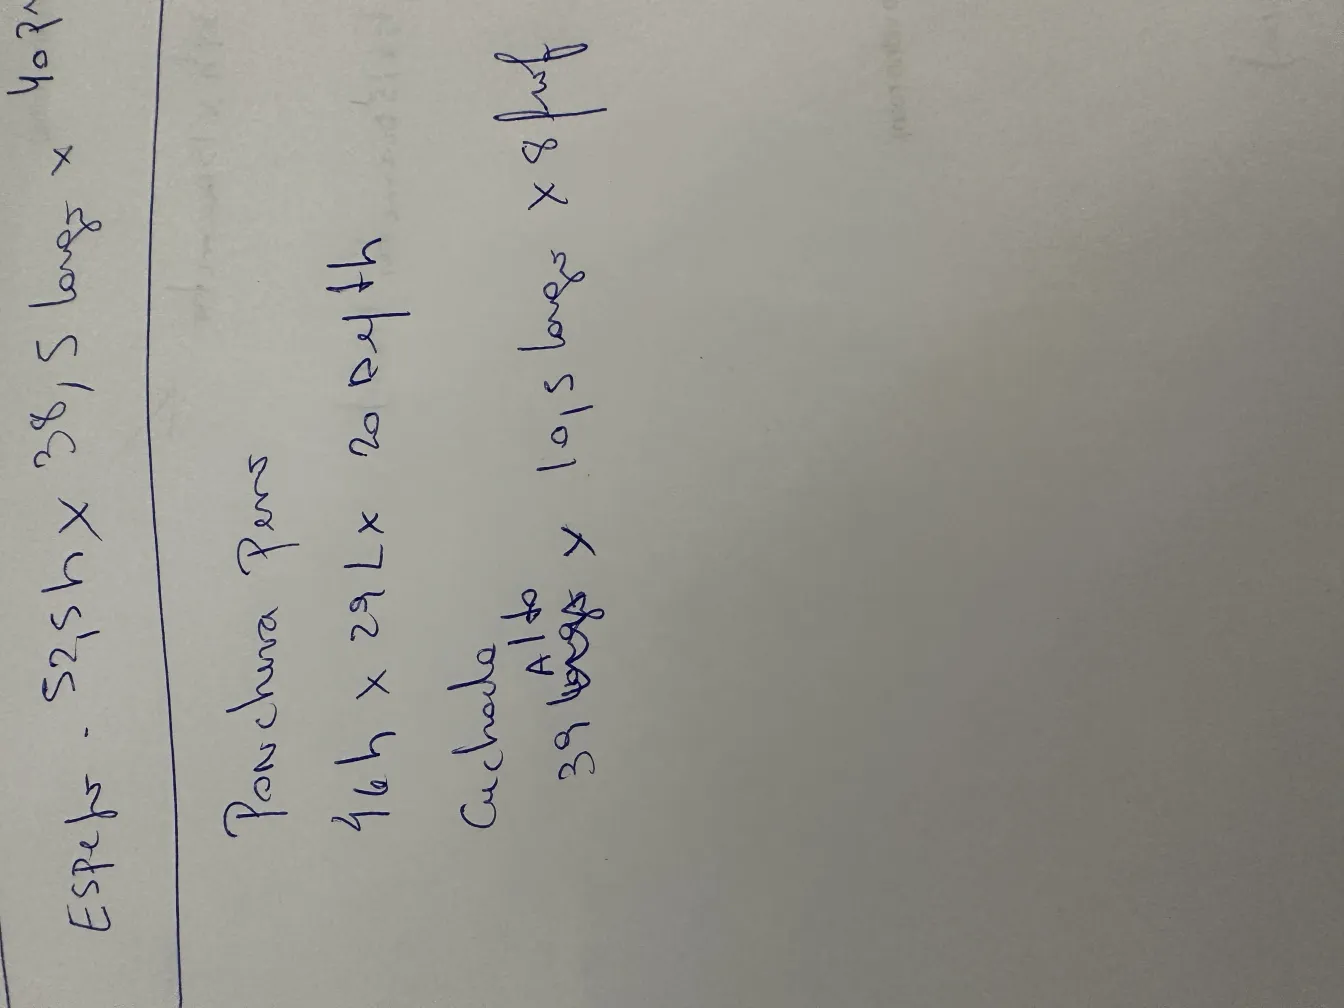 Espejo . 52,5 h x 38,5 largo x 40 Pr
Ponchera Perro
46 h x 29 L x 20 Depth
Cuchada
Alto
39 largo x 10,5 largo x 8 prof